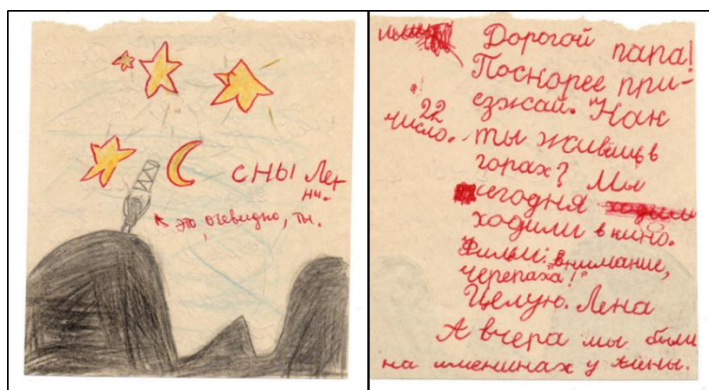 сны Лен
ны.
это, очевидно, ты.
Дорогой папа!
Поскорее при-
езжай. Как
22
число.
ты живешь в
горах? Мы
сегодня
ходили в кино.
Фильм: "Внимание,
черепаха!"
Целую. Лена
А вчера мы были
на именинах у Нины.